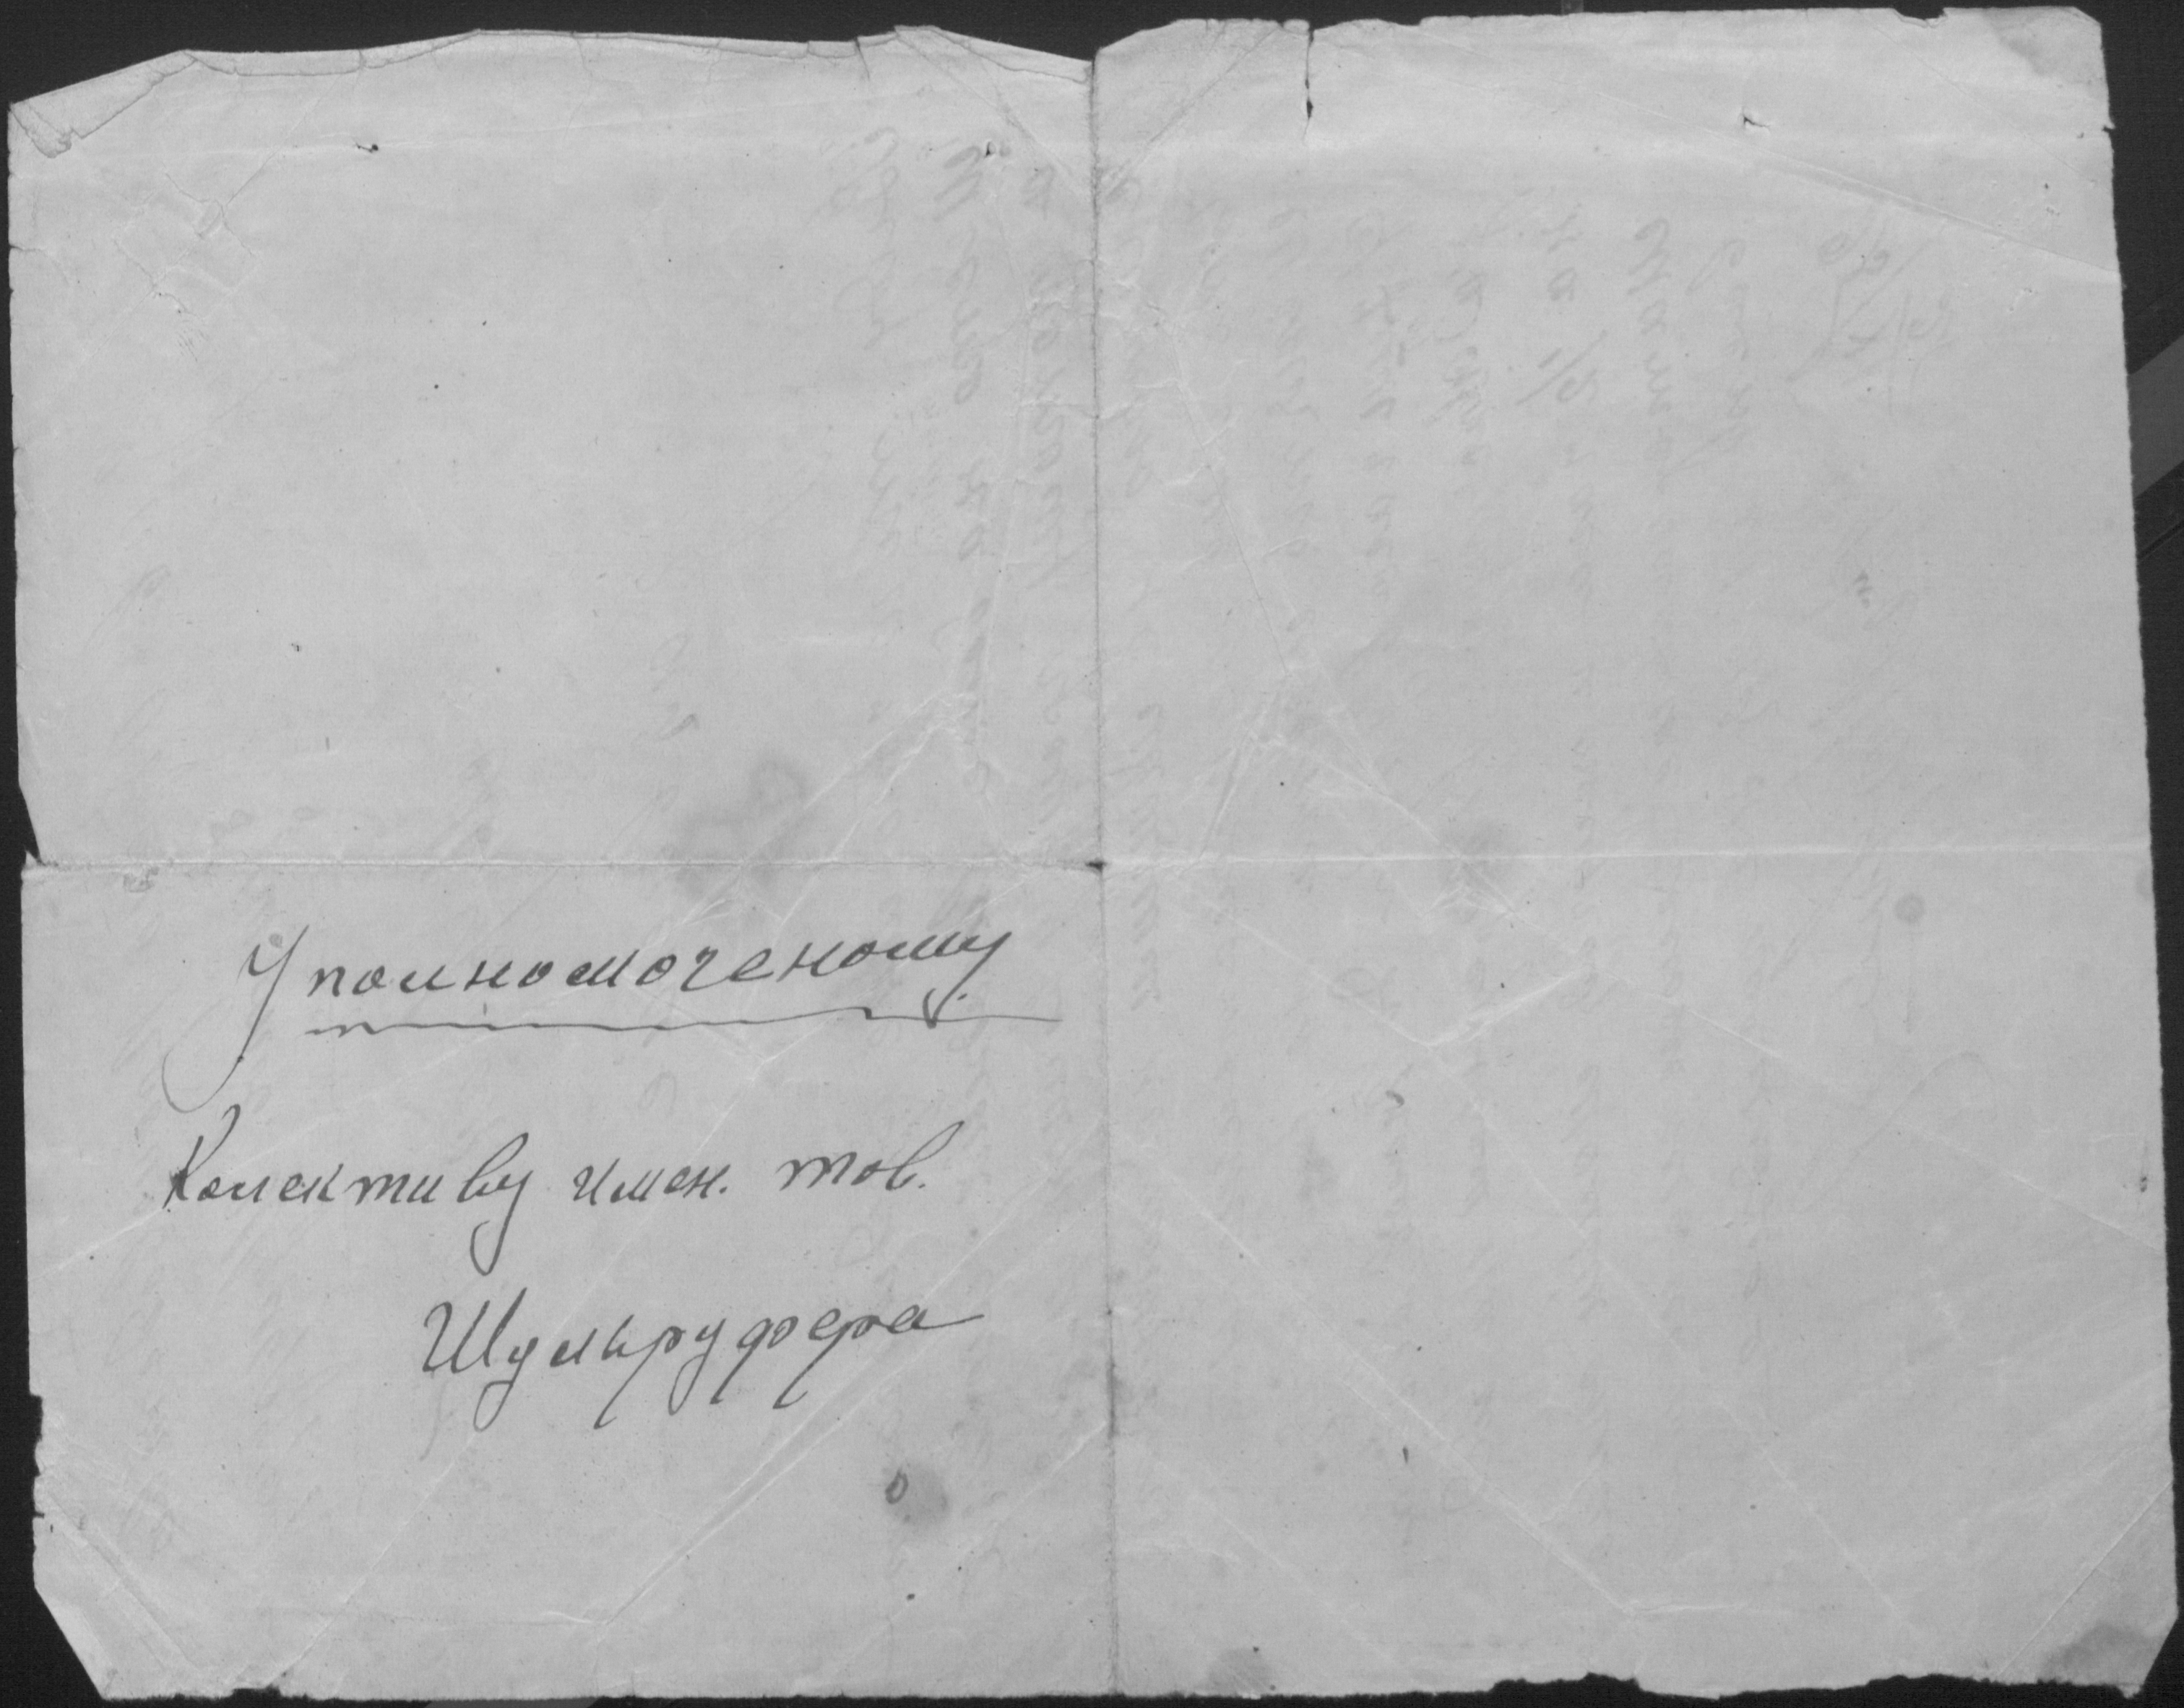 Уполномоченому
Колективу имен. тов.
Шульруфера